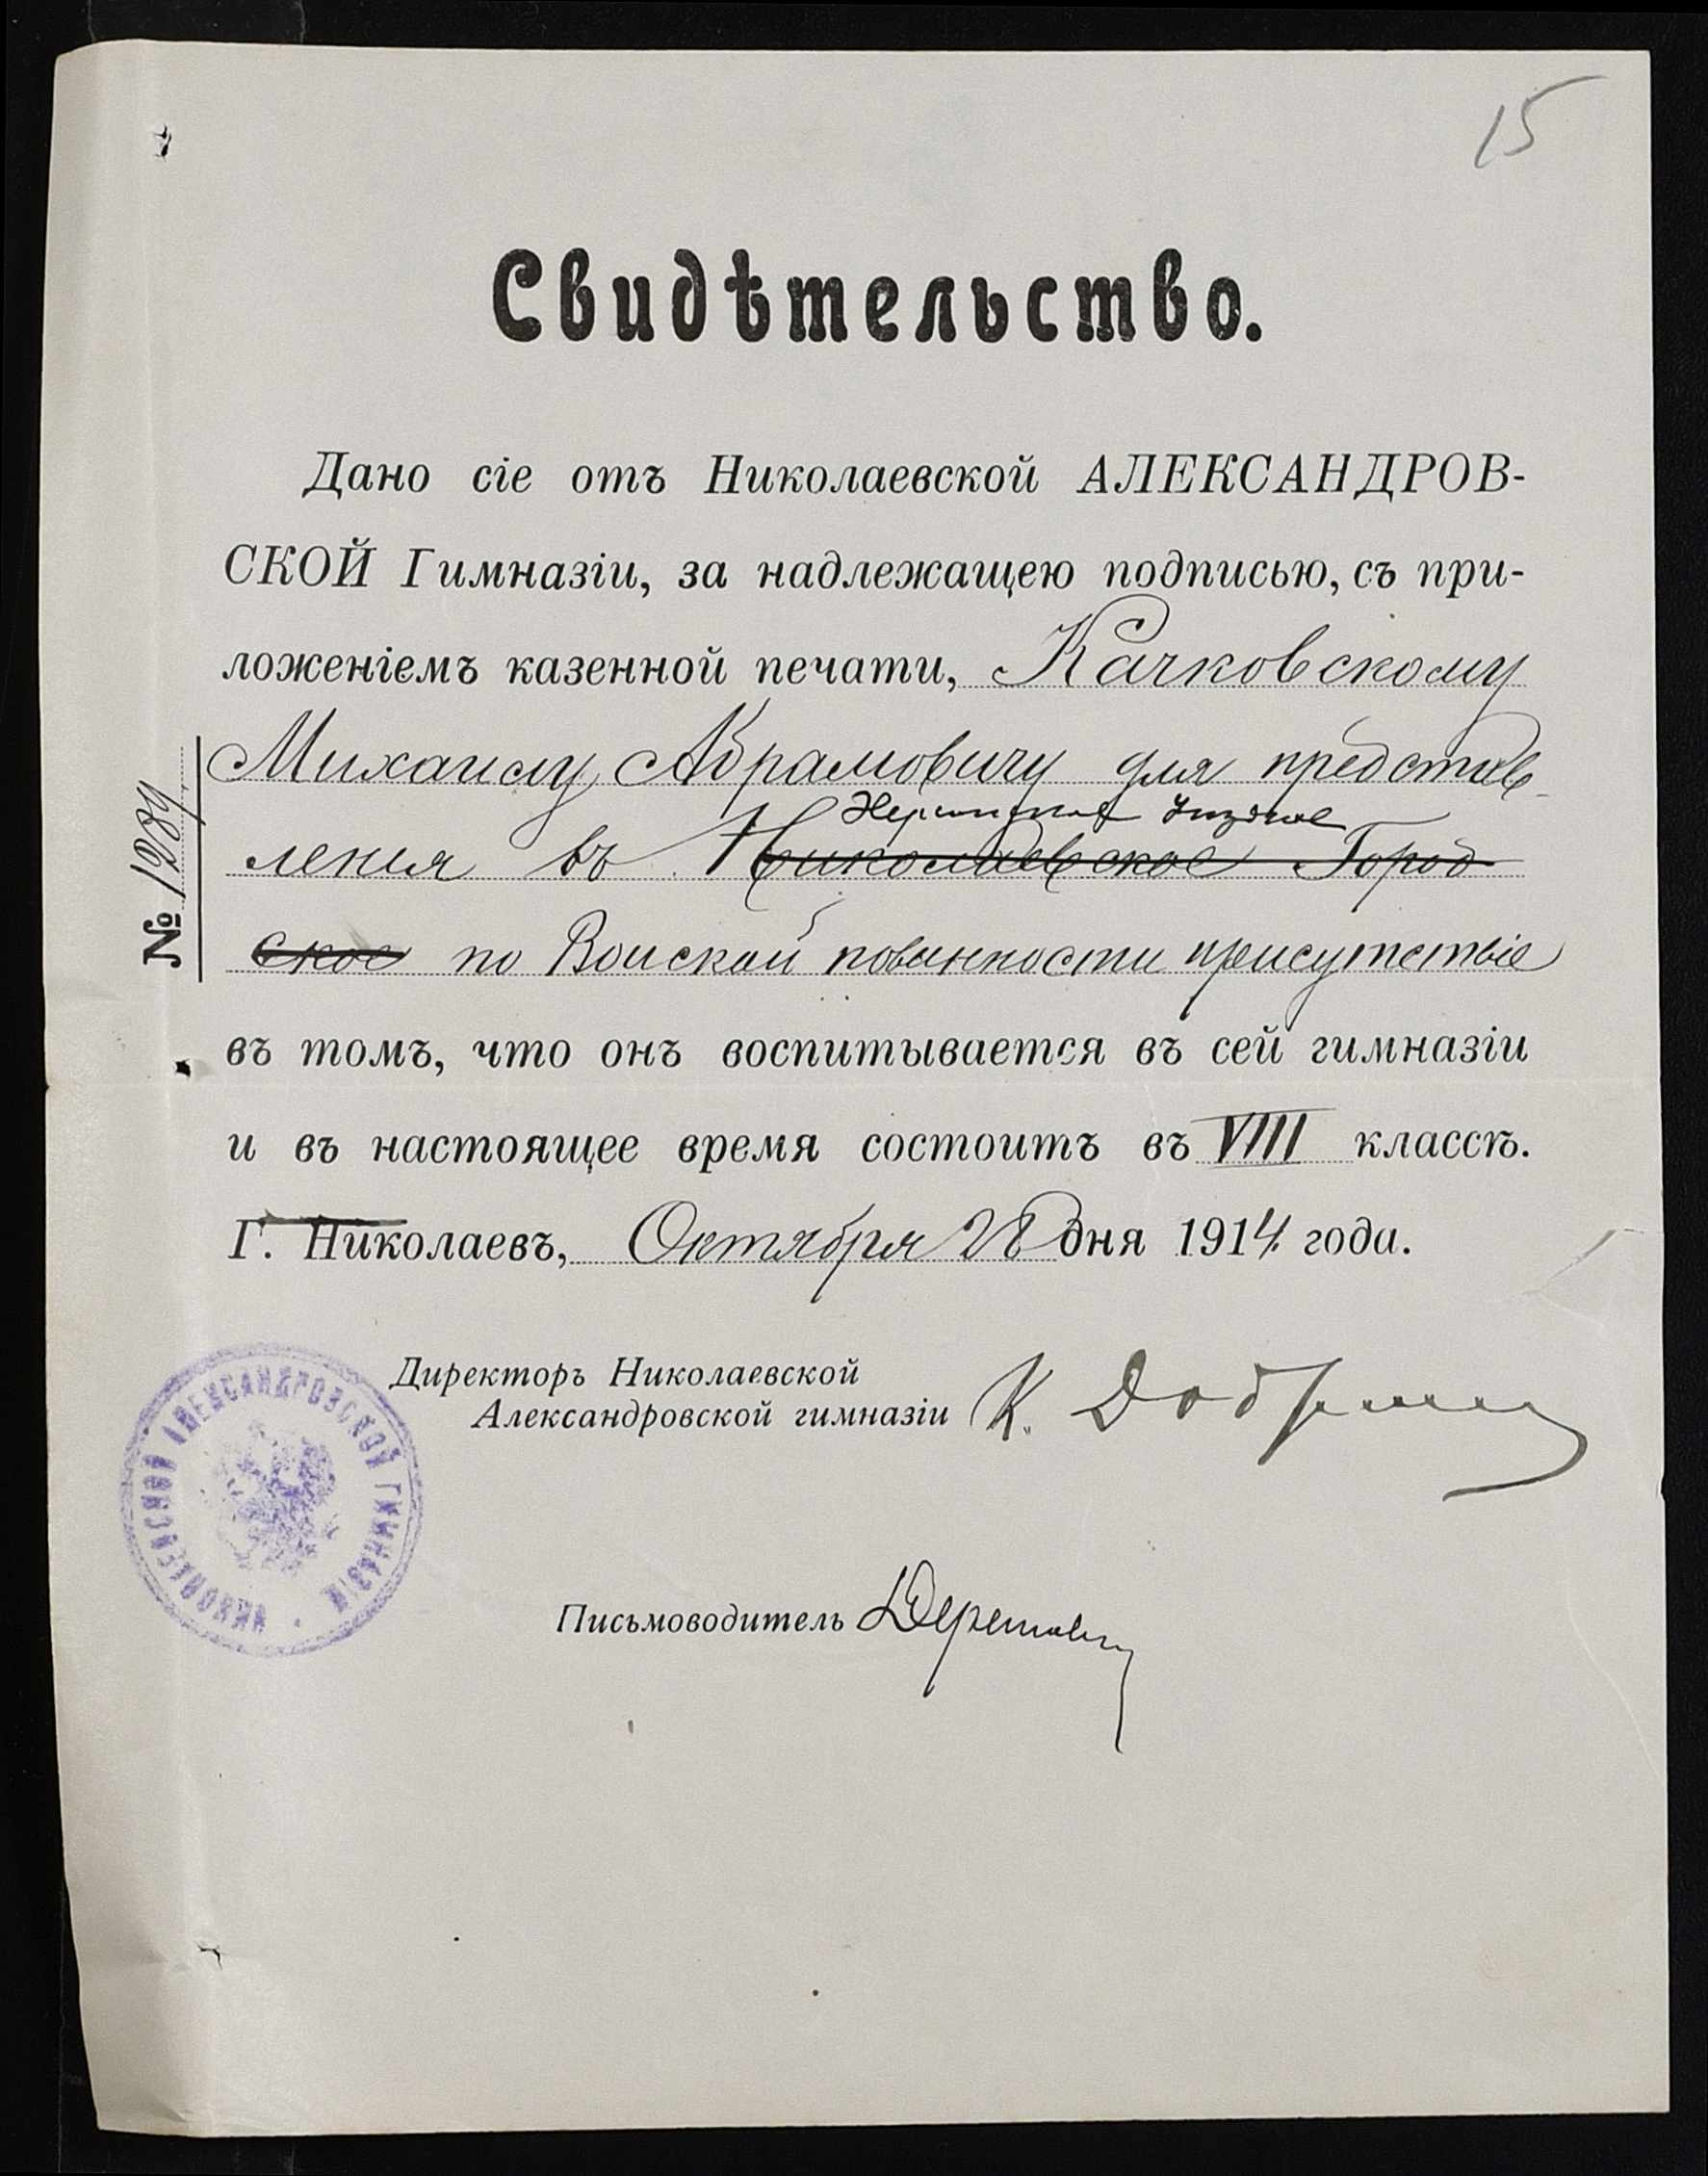 15
Свидѣтельство.
Дано сіе отъ Николаевской АЛЕКСАНДРОВ-
СКОЙ Гимназіи, за надлежащею подписью, съ при-
ложеніемъ казенной печати, Качковскому
Михаилу Абрамовичу для представ-
Херсонское Уѣздное
ленія въ Николаевское Город
ское по Воинской повинности присутствіе
въ томъ, что онъ воспитывается въ сей гимназіи
и въ настоящее время состоитъ въ VIII классѣ.
Г. Николаевъ, Октября 28 дня 1914 года.
№ 1289
Директоръ Николаевской
Александровской гимназіи К.
Письмоводитель
НИКОЛАЕВСКОЙ АЛЕКСАНДРОВСКОЙ ГИМНАЗІИ